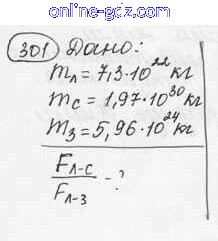 online-gdz.com
301 Дано:
mл = 7,3·10²² кг
mс = 1,97·10³⁰ кг
mз = 5,96·10²⁴ кг
Fл-с
Fл-з
-?